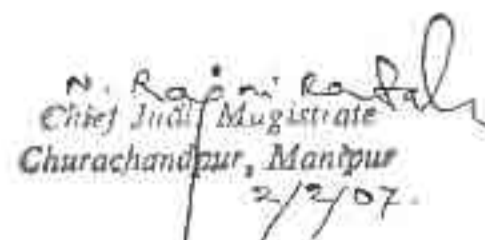 N. Rajani
Chief Judl Magistrate
Churachandpur, Manipur
2/2/07.